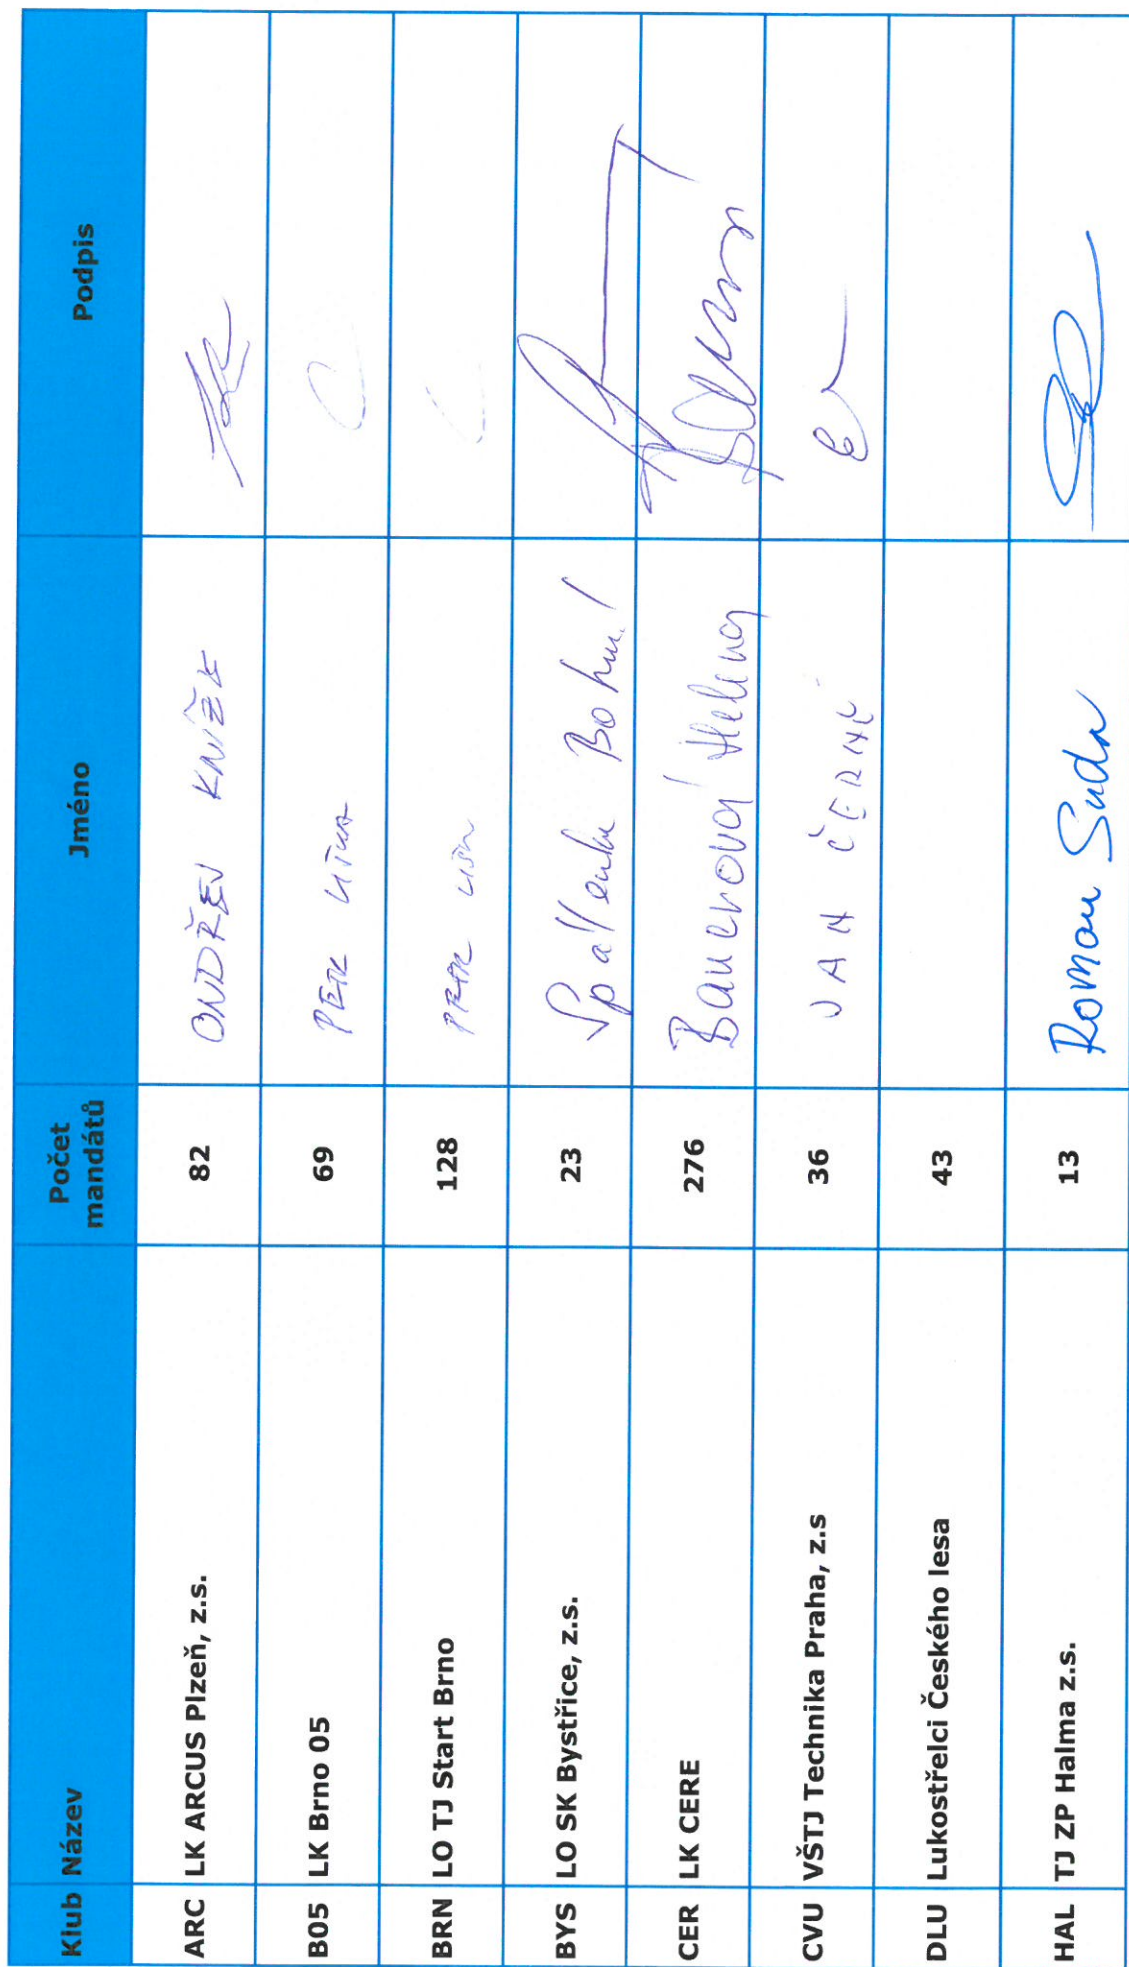 Klub Název Počet mandátů Jméno Podpis
ARC LK ARCUS Plzeň, z.s. 82 ONDŘEJ KNÍŽEK
B05 LK Brno 05 69 PETR
BRN LO TJ Start Brno 128 PETR
BYS LO SK Bystřice, z.s. 23 Bohumil
CER LK CERE 276 Bauerová Helena
CVU VŠTJ Technika Praha, z.s 36 JAN ČERNÝ
DLU Lukostřelci Českého lesa 43
HAL TJ ZP Halma z.s. 13 Roman Suda